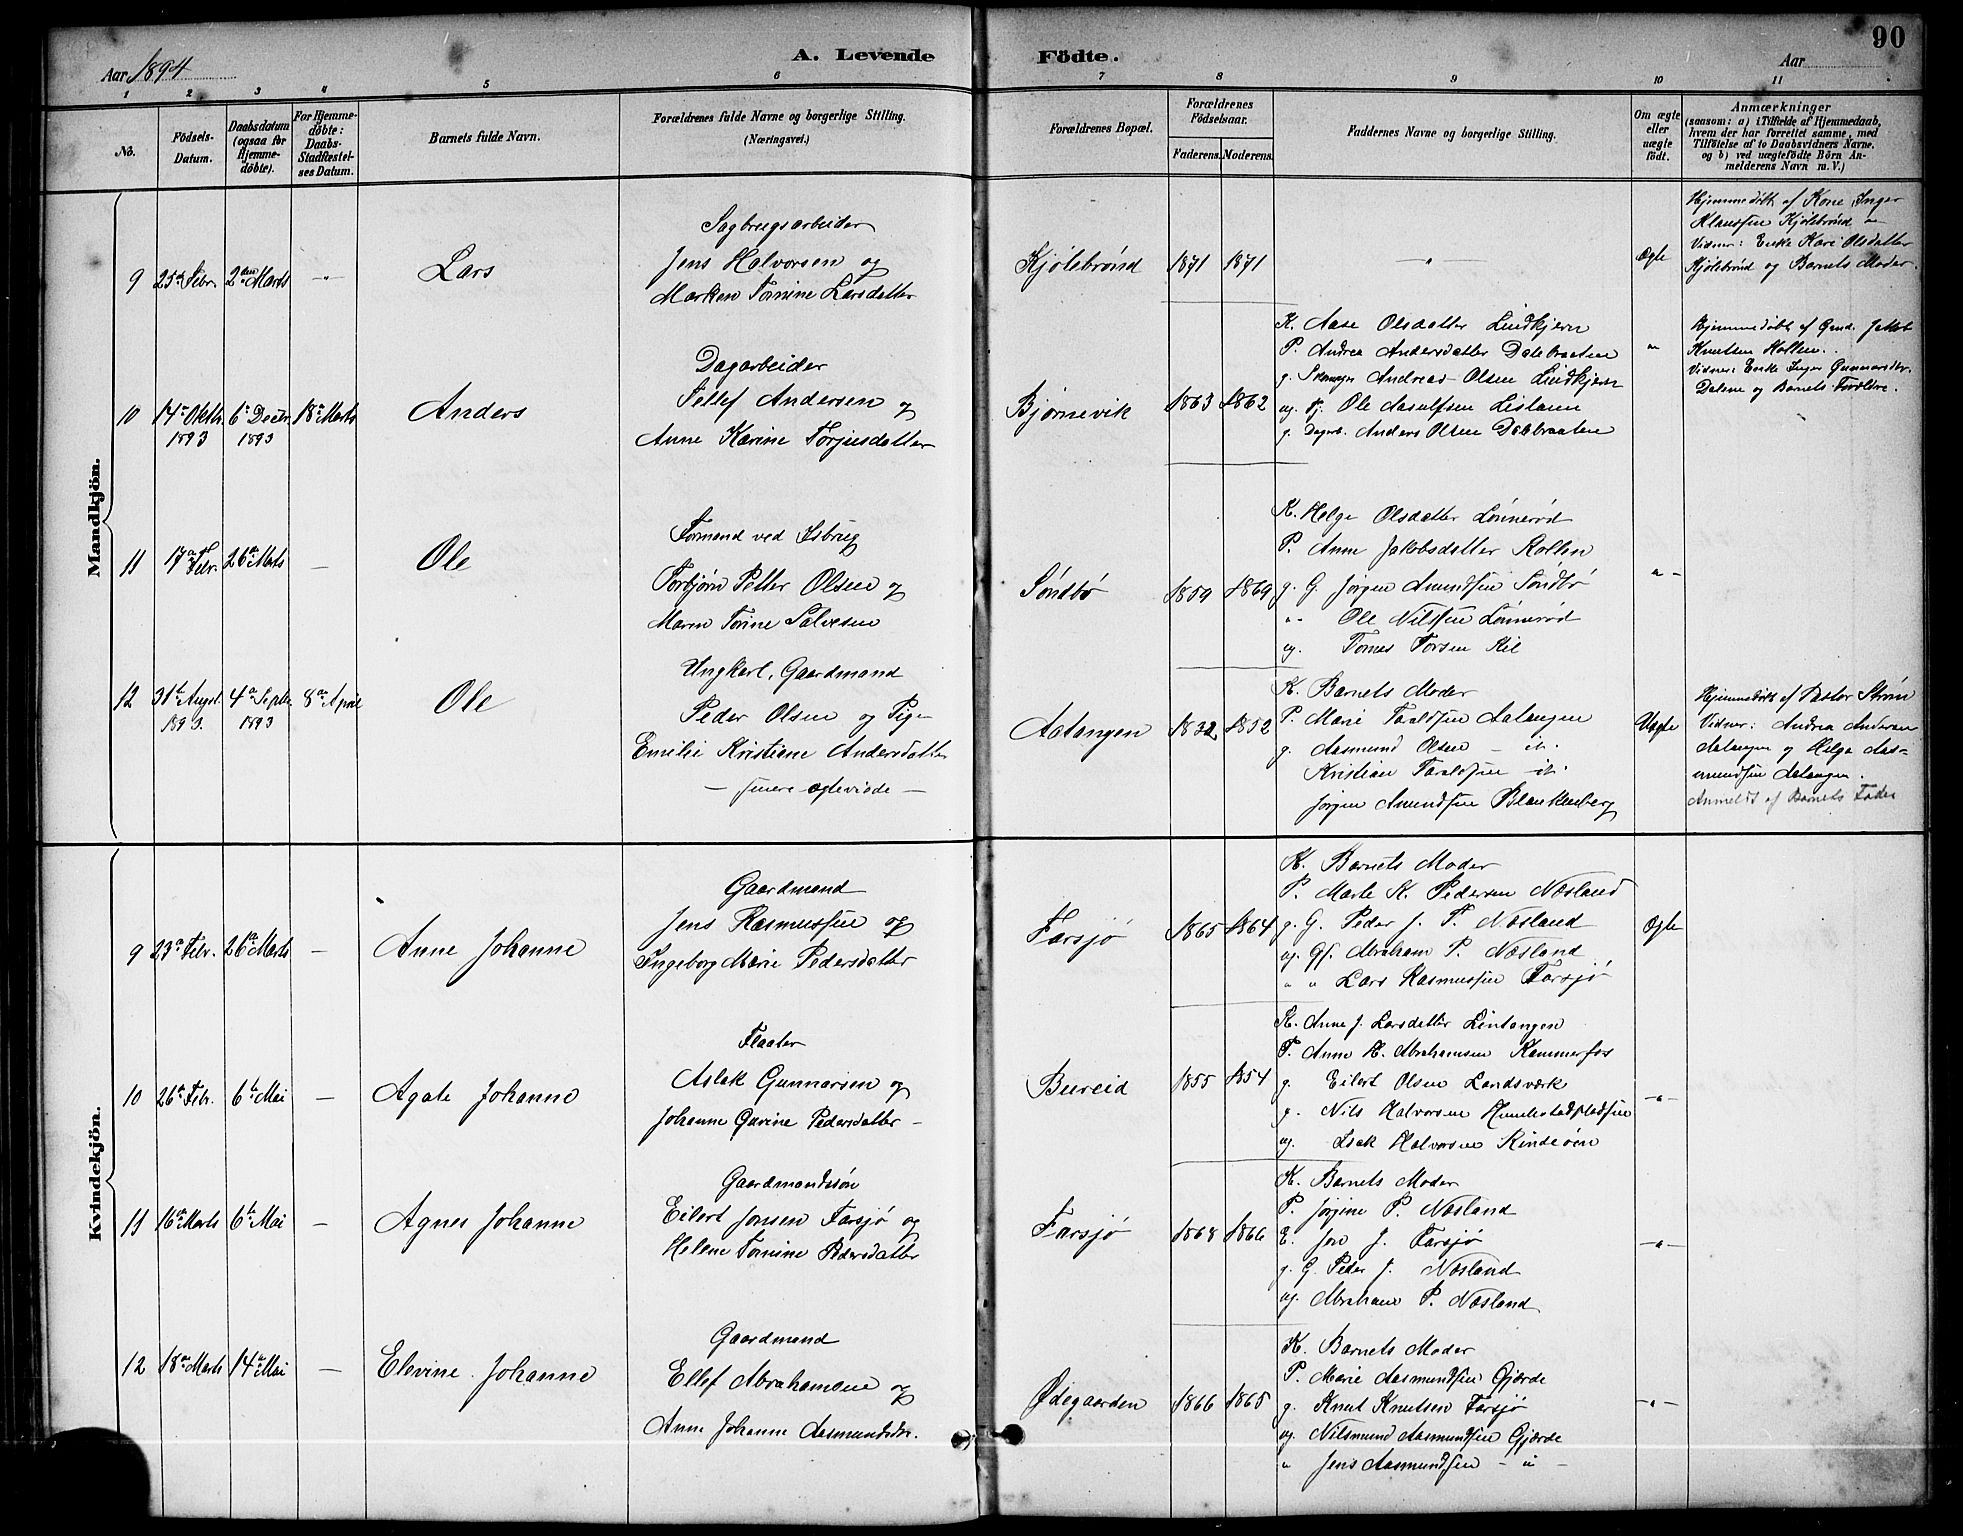 Aar 1894
A. Levende
Födte.
Aar
90
1
2
3
4
5
6
7
8
9
10
11
No.
Födsels-
Datum.
Daabsdatum
(ogsaa for
Hjemme-
døbte).
For Hjemme-
døbte:
Daabs-
Stadfæstel-
ses Datum.
Barnets fulde Navn.
Forældrenes fulde Navne og borgerlige Stilling.
(Næringsvei.)
Forældrenes Bopæl.
Forældrenes
Födselsaar.
Faderens.
Moderens.
Faddernes Navne og borgerlige Stilling.
Om ægte
eller
uægte
født.
Anmærkninger
(saasom: a) i Tilfælde af Hjemmedaab,
hvem der har forrettet samme, med
Tilföielse af to Daabsvidners Navne,
og b) ved uægtefödte Börn An-
melderens Navn m. V.)
Mandkjön.
9
25de Febr.
2den Marts
Lars
Sagbrugsarbeider
Jens Halvorsen og
Maren Tomine Larsdatter
Kjølebrønd
1871
1871
Ægte
Hjemmedøbt af Kone Inger
Klaussen Kjølebrønd
Vidner: Enke Kari Olsdatter
Kjølebrønd og Barnets Moder.
10
14de Oktbr.
1893
6te Decbr.
1893
18de Marts
Anders
Dagarbeider
Tellef Andersen og
Anne Karine Torjusdatter
Bjørnevik
1863
1862
K. Aase Olsdatter Lindkjern
P. Andrea Andersdatter Dalebraaten
g. Andreas Olsen Lindkjern
og Ole Aasulfsen
g. Dagarb. Anders Olsen Dalebraaten
Hjemmedøbt af Jakob
Knutsen
Vidner: Enke Inger Gunnarsdtr.
Dalene og Barnets Forældre.
11
17de Febr.
26de Marts
Ole
Formand ved Isbrug
Torbjørn Petter Olsen og
Maren Tomine Salvesen
Søndbø
1859
1869
K. Helge Olsdatter Lønnerød
P. Anne Jakobsdatter
g. G. Jørgen Amundsen Søndbø
Ole Nilssen Lønnerød
og. Tomas Torsen Kil
12
31te August
1893.
4de Septbr.
1893
8de April
Ole
Ungkarl, Gaardmand
Peder Olsen og Pige
Emilie Kristiane Andersdatter
— senere ægteviede —
Aatangen
1832
1852
K. Barnets Moder
P. Marie Taraldsen Aatangen
g. Aasmund Olsen — it.
Kristian Taraldsen — it.
Jørgen Amundsen Blankenberg
Uægte
Hjemmedøbt af Pastor Strøm
Vidner: Andrea Andersen
Aatangen og Helga Aas-
mundsen Aatangen.
Anmeldt af Barnets Fader
Kvindekjön.
9
23de Febr.
26de Marts
Anne Johanne
Gaardmand
Jens Rasmussen og
Ingeborg Marie Pedersdatter
Farsjø
1865
1864
K. Barnets Moder
P. Marte K. Pedersen Næsland
g. G. Peder J. Næsland
og. Gf. Abraham P. Næsland
" " Lars Rasmussen Farsjø
Ægte
10
26de Febr.
6te Mai
Agate Johanne
Flaater
Aslak Gunnarsen og
Johanne Gurine Pedersdatter
Bureid
1855
1854
K. Anne J. Larsdatter Lintangen
P. Anne H. Abrahamsen Kammerfos
g. Eilert Olsen Landsværk
g. Nils Halvorsen
og. Isak Halvorsen
11
16de Marts
6te Mai
Agnes Johanne
Gaardmandssøn
Eilert Jensen Farsjø og
Helene Tomine Pedersdatter
Farsjø
1868
1866
K. Barnets Moder
P. Jørgine P. Næsland
E. Jens J. Farsjø
g. G. Peder J. Næsland
og. Abraham P. Næsland
12
18de Marts
14de Mai
Elevine Johanne
Gaardmand
Ellef Abrahamsen og
Anne Johanne Aasmundsdtr.
Ødegaarden
1866
1865
K. Barnets Moder
P. Marie Aasmundsen Gjærde
g. Knut Knutsen Farsjø
og Nilsmund Aasmundsen Gjærde
" Jens Aasmundsen — " —